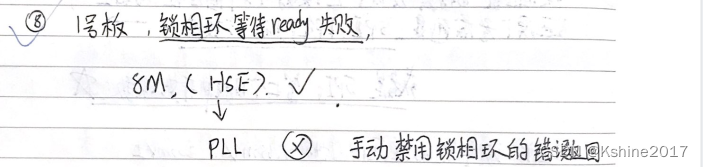 ⑧ 1号板，锁相环等待ready失败，
8M，(HSE). ✓
↓
PLL ⓧ 手动禁用锁相环的错误返回
CSDN @Kshine2017